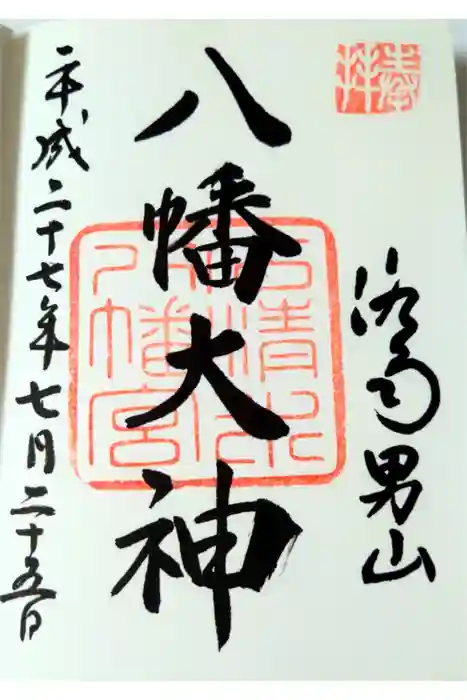 奉拝
洛南男山
八幡大神
石清水
八幡宮
平成二十七年七月二十五日